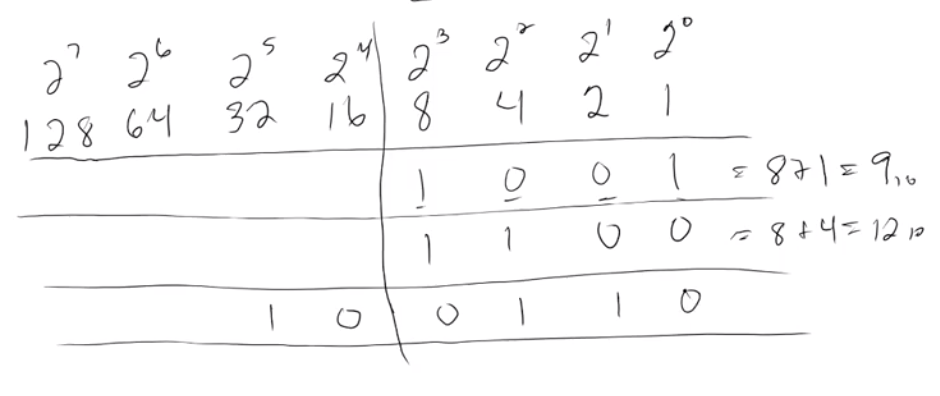 2⁷ 2⁶ 2⁵ 2⁴ 2³ 2² 2¹ 2⁰
128 64 32 16 8 4 2 1
1 0 0 1 = 8+1 = 9₁₀
1 1 0 0 = 8+4 = 12₁₀
1 0 0 1 1 0